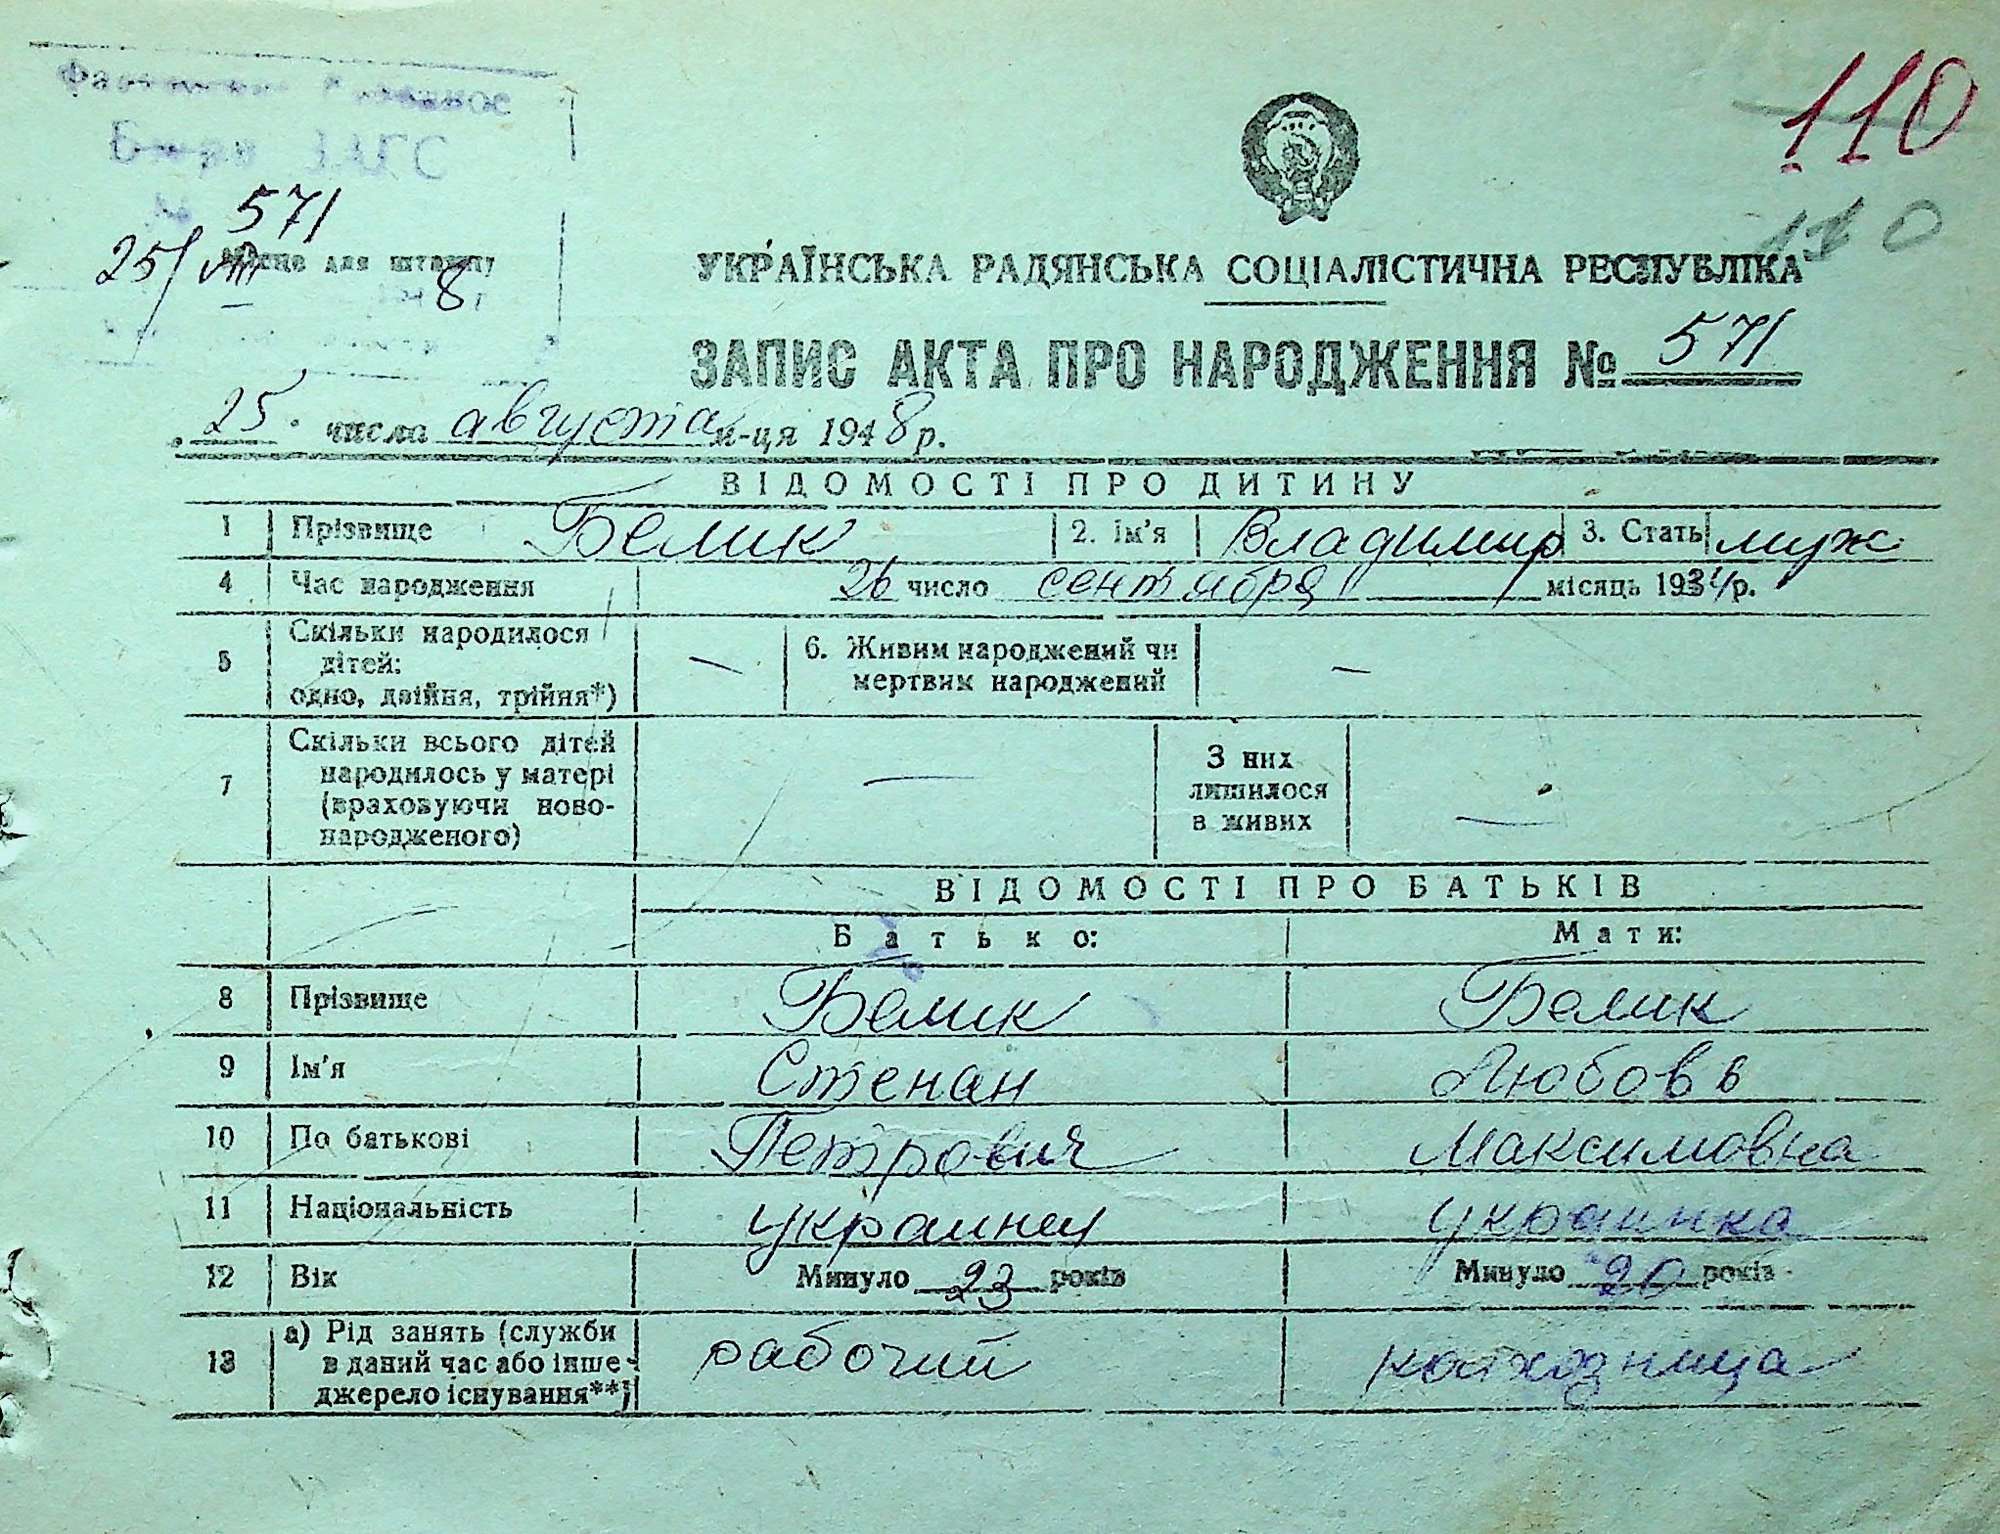 110
Бюро ЗАГС
130
571
25/VIII 8
місце для штампу
УКРАЇНСЬКА РАДЯНСЬКА СОЦІАЛІСТИЧНА РЕСПУБЛІКА
ЗАПИС АКТА ПРО НАРОДЖЕННЯ № 571
25. числа августа м-ця 1948 р.
ВІДОМОСТІ ПРО ДИТИНУ
1 Прізвище Белик 2. Ім'я Владимир 3. Стать муж
4 Час народження 26 число сентября місяць 1934 р.
5 Скільки народилося дітей: одно, двійня, трійня*) — 6. Живим народжений чи мертвим народжений —
7 Скільки всього дітей народилось у матері (враховуючи новонародженого) — З них лишилося в живих —
ВІДОМОСТІ ПРО БАТЬКІВ
Батько: Мати:
8 Прізвище Белик Белик
9 Ім'я Степан Любовь
10 По батькові Петрович Максимовна
11 Національність украинец украинка
12 Вік Минуло 23 років Минуло 20 років
13 а) Рід занять (служби в даний час або інше джерело існування**) рабочий колхозница